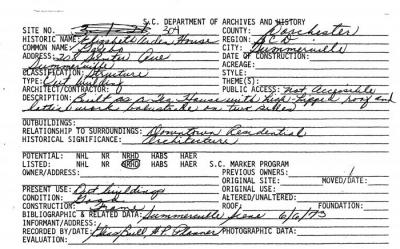 S.C. DEPARTMENT OF ARCHIVES AND HISTORY
SITE NO. 304 COUNTY: Dorchester
HISTORIC NAME: Elizabeth Arden House REGION: BCD
COMMON NAME: Gazebo CITY: Summerville
ADDRESS: 208 Sumter Ave DATE OF CONSTRUCTION:
Summerville ACREAGE:
CLASSIFICATION: Structure STYLE:
TYPE: Out building THEME(S):
ARCHITECT/CONTRACTOR: PUBLIC ACCESS: Not Accessible
DESCRIPTION: Built as a Tea House with high hipped roof and
lattice work balustrade on two sides
OUTBUILDINGS:
RELATIONSHIP TO SURROUNDINGS: Downtown Residential
HISTORICAL SIGNIFICANCE: Architecture
POTENTIAL: NHL NR NRHD HABS HAER
LISTED: NHL NR NRHD HABS HAER S.C. MARKER PROGRAM
OWNER/ADDRESS: PREVIOUS OWNERS:
ORIGINAL SITE: MOVED/DATE:
PRESENT USE: Out buildings ORIGINAL USE:
CONDITION: Good ALTERED/UNALTERED:
CONSTRUCTION: Frame ROOF: FOUNDATION:
BIBLIOGRAPHIC & RELATED DATA: Summerville Scene 6/6/73
INFORMANT/ADDRESS:
RECORDED BY/DATE: HP Planner PHOTOGRAPHIC DATA:
EVALUATION: